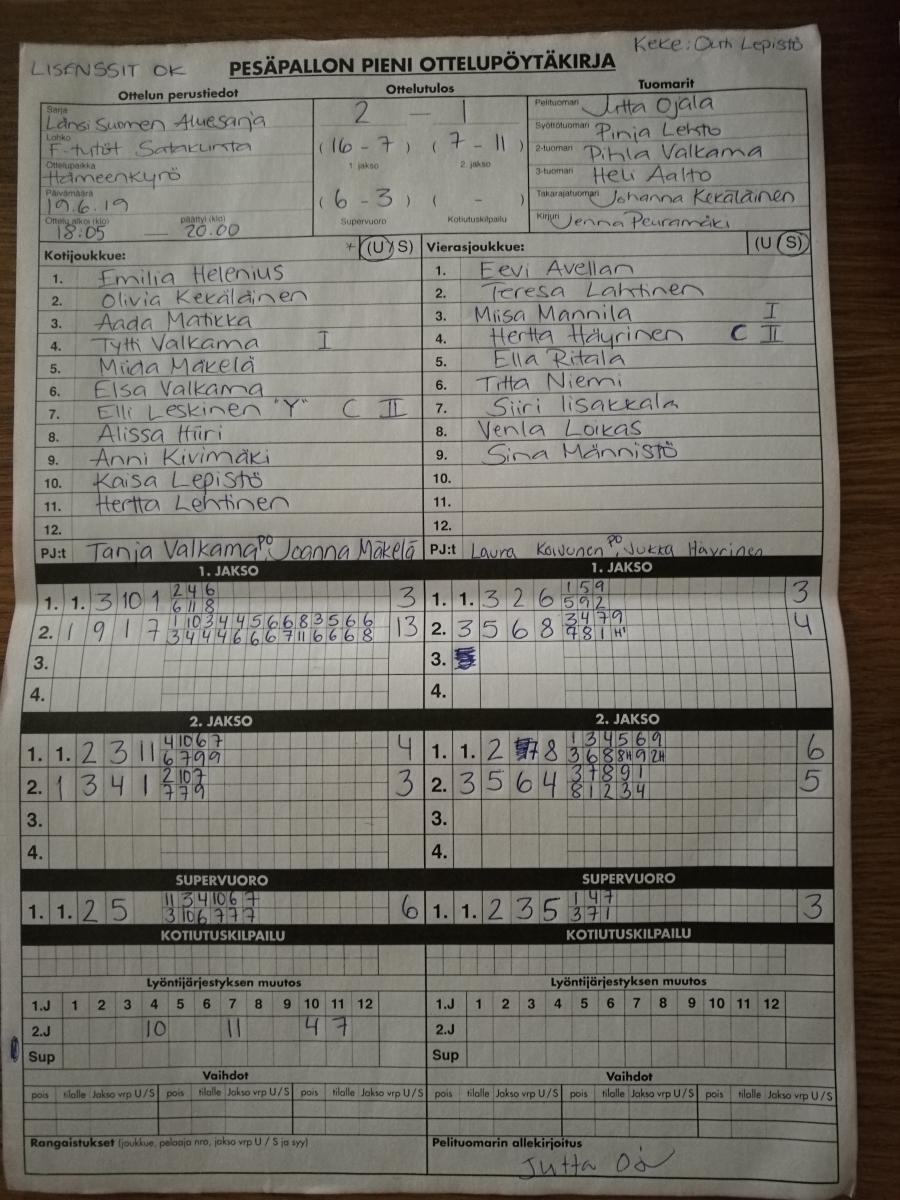 Keke: Outi Lepistö
LISENSSIT OK
PESÄPALLON PIENI OTTELUPÖYTÄKIRJA
Ottelun perustiedot Ottelutulos Tuomarit
Sarja Länsi Suomen Aluesarja 2 — 1 Pelituomari Jutta Ojala
Lohko F-tytöt Satakunta (16 - 7) (7 - 11) Syöttötuomari Pinja Lehto
1. jakso 2. jakso 2-tuomari Pihla Valkama
Ottelupaikka Hämeenkyrö 3-tuomari Heli Aalto
Päivämäärä 19.6.19 (6 - 3) ( - ) Takarajatuomari Johanna Kekäläinen
Ottelu alkoi (klo) 18:05 — päättyi (klo) 20.00 Supervuoro Kotiutuskilpailu Kirjuri Jenna Peuramäki
Kotijoukkue: * (U S) Vierasjoukkue: (U S)
1. Emilia Helenius 1. Eevi Avellan
2. Olivia Kekäläinen 2. Teresa Lahtinen
3. Aada Matikka 3. Miisa Mannila I
4. Tytti Valkama I 4. Hertta Häyrinen C II
5. Miida Mäkelä 5. Ella Ritala
6. Elsa Valkama 6. Titta Niemi
7. Elli Leskinen "Y" C II 7. Siiri Iisakkala
8. Alissa Hiiri 8. Venla Loikas
9. Anni Kivimäki 9. Sina Männistö
10. Kaisa Lepistö 10.
11. Hertta Lehtinen 11.
12. 12.
PJ:t Tanja Valkama PO, Joanna Mäkelä PJ:t Laura Koivunen PO, Jukka Häyrinen
1. JAKSO 1. JAKSO
2 4 6 1 5 9
1. 1. 3 10 1 3 1. 1. 3 2 6 3
6 11 8 5 9 2
1 10 3 4 4 5 6 6 8 3 5 6 6 3 4 7 9
2. 1 9 1 7 13 2. 3 5 6 8 4
3 4 4 4 6 6 6 7 11 6 6 6 8 7 8 1 H1
3. 3.
4. 4.
2. JAKSO 2. JAKSO
4 10 6 7 1 3 4 5 6 9
1. 1. 2 3 11 4 1. 1. 2 8 6
6 7 9 9 3 6 8 8H 9 2H
2 10 7 3 7 8 9 1
2. 1 3 4 1 3 2. 3 5 6 4 5
7 7 9 8 1 2 3 4
3. 3.
4. 4.
SUPERVUORO SUPERVUORO
11 3 4 10 6 7 1 4 7
1. 1. 2 5 6 1. 1. 2 3 5 3
3 10 6 7 7 7 3 7 1
KOTIUTUSKILPAILU KOTIUTUSKILPAILU
Lyöntijärjestyksen muutos Lyöntijärjestyksen muutos
1.J 1 2 3 4 5 6 7 8 9 10 11 12 1.J 1 2 3 4 5 6 7 8 9 10 11 12
2.J 10 11 4 7 2.J
Sup Sup
Vaihdot Vaihdot
pois tilalle Jakso vrp U/S pois tilalle Jakso vrp U/S pois tilalle Jakso vrp U/S pois tilalle Jakso vrp U/S pois tilalle Jakso vrp U/S pois tilalle Jakso vrp U/S
Rangaistukset (joukkue, pelaaja nro, jakso vrp U / S ja syy) Pelituomarin allekirjoitus
Jutta